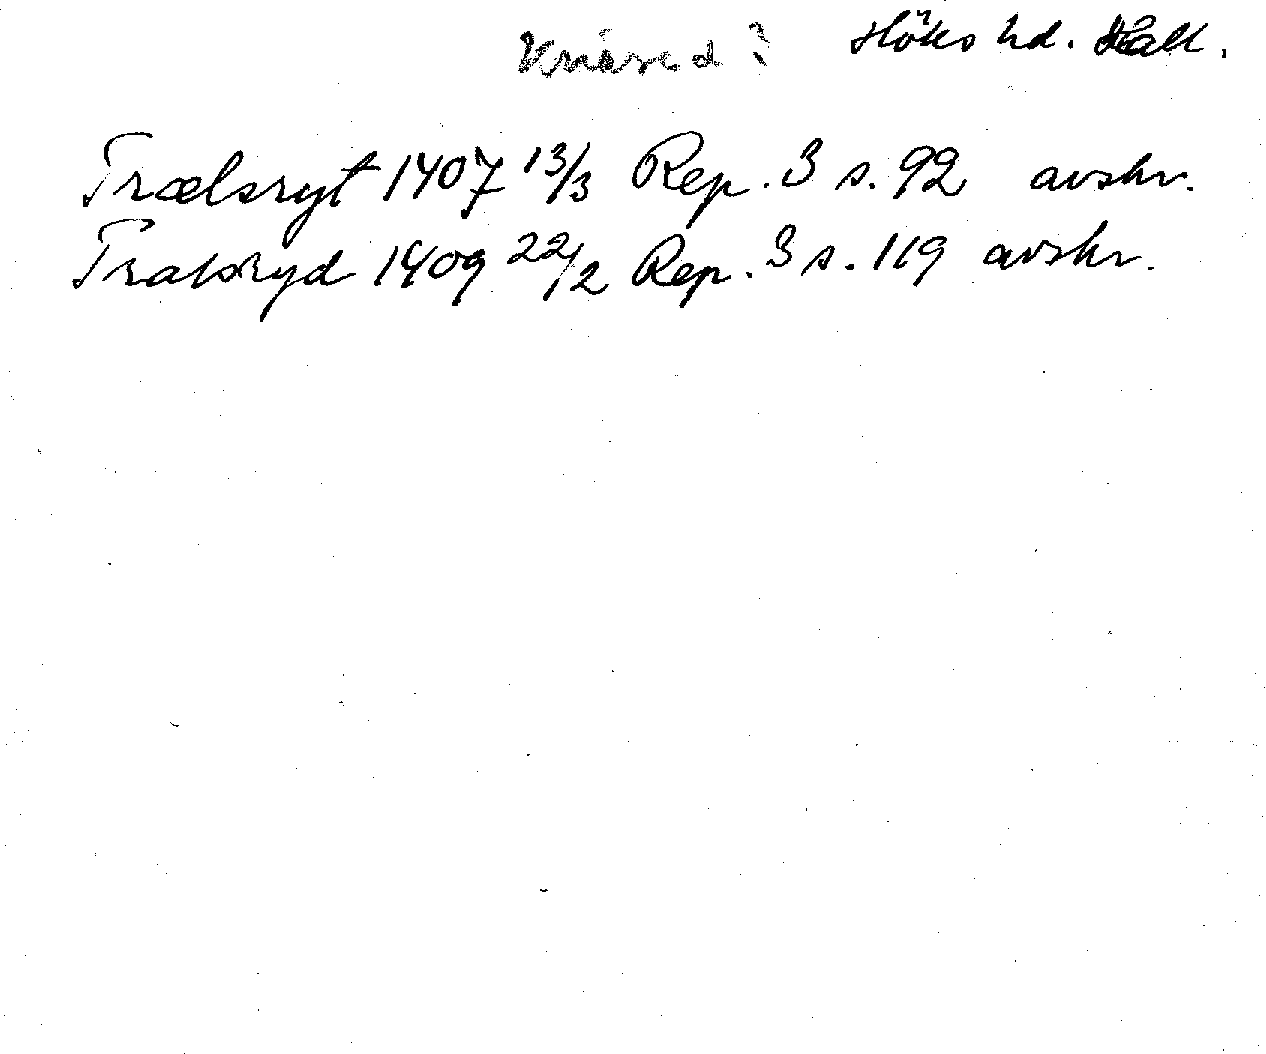 Knäred? Höks hd. Hall.
Trælsryt 1407 13/3 Rep. 3 s. 92 avskr.
Tralsryd 1409 22/2 Rep. 3 s. 119 avskr.